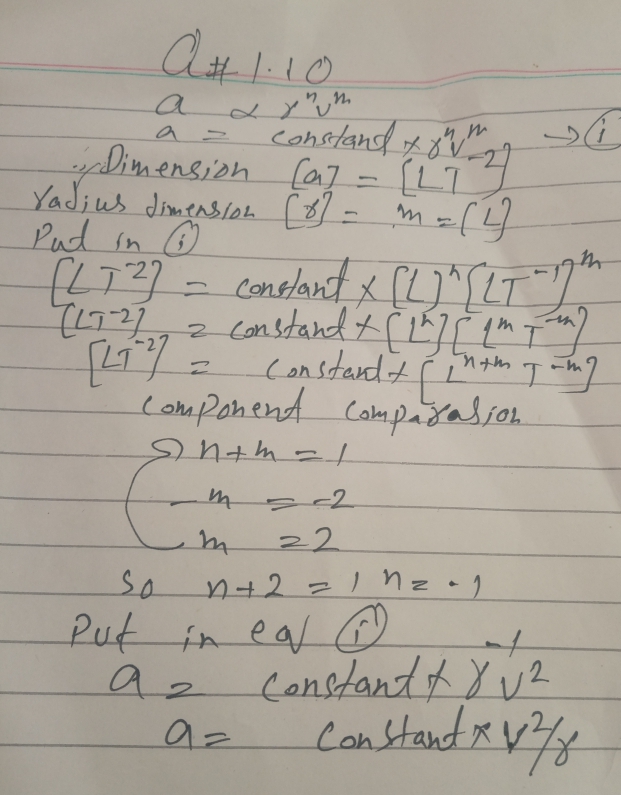 Q# 1.10
a ∝ rⁿvᵐ
a = constand × rⁿvᵐ → (i)
∴ Dimension [a] = [LT⁻²]
radius dimension [r] = m = [L]
Put in (i)
[LT⁻²] = constant × [L]ⁿ [LT⁻¹]ᵐ
[LT⁻²] = constant × [Lⁿ] [Lᵐ T⁻ᵐ]
[LT⁻²] = constant × [Lⁿ⁺ᵐ T⁻ᵐ]
Component comparasion
n+m = 1
-m = -2
m = 2
So n+2 = 1 n = -1
Put in eq (i)
a = constant × r⁻¹ v²
a = constant × v²/r